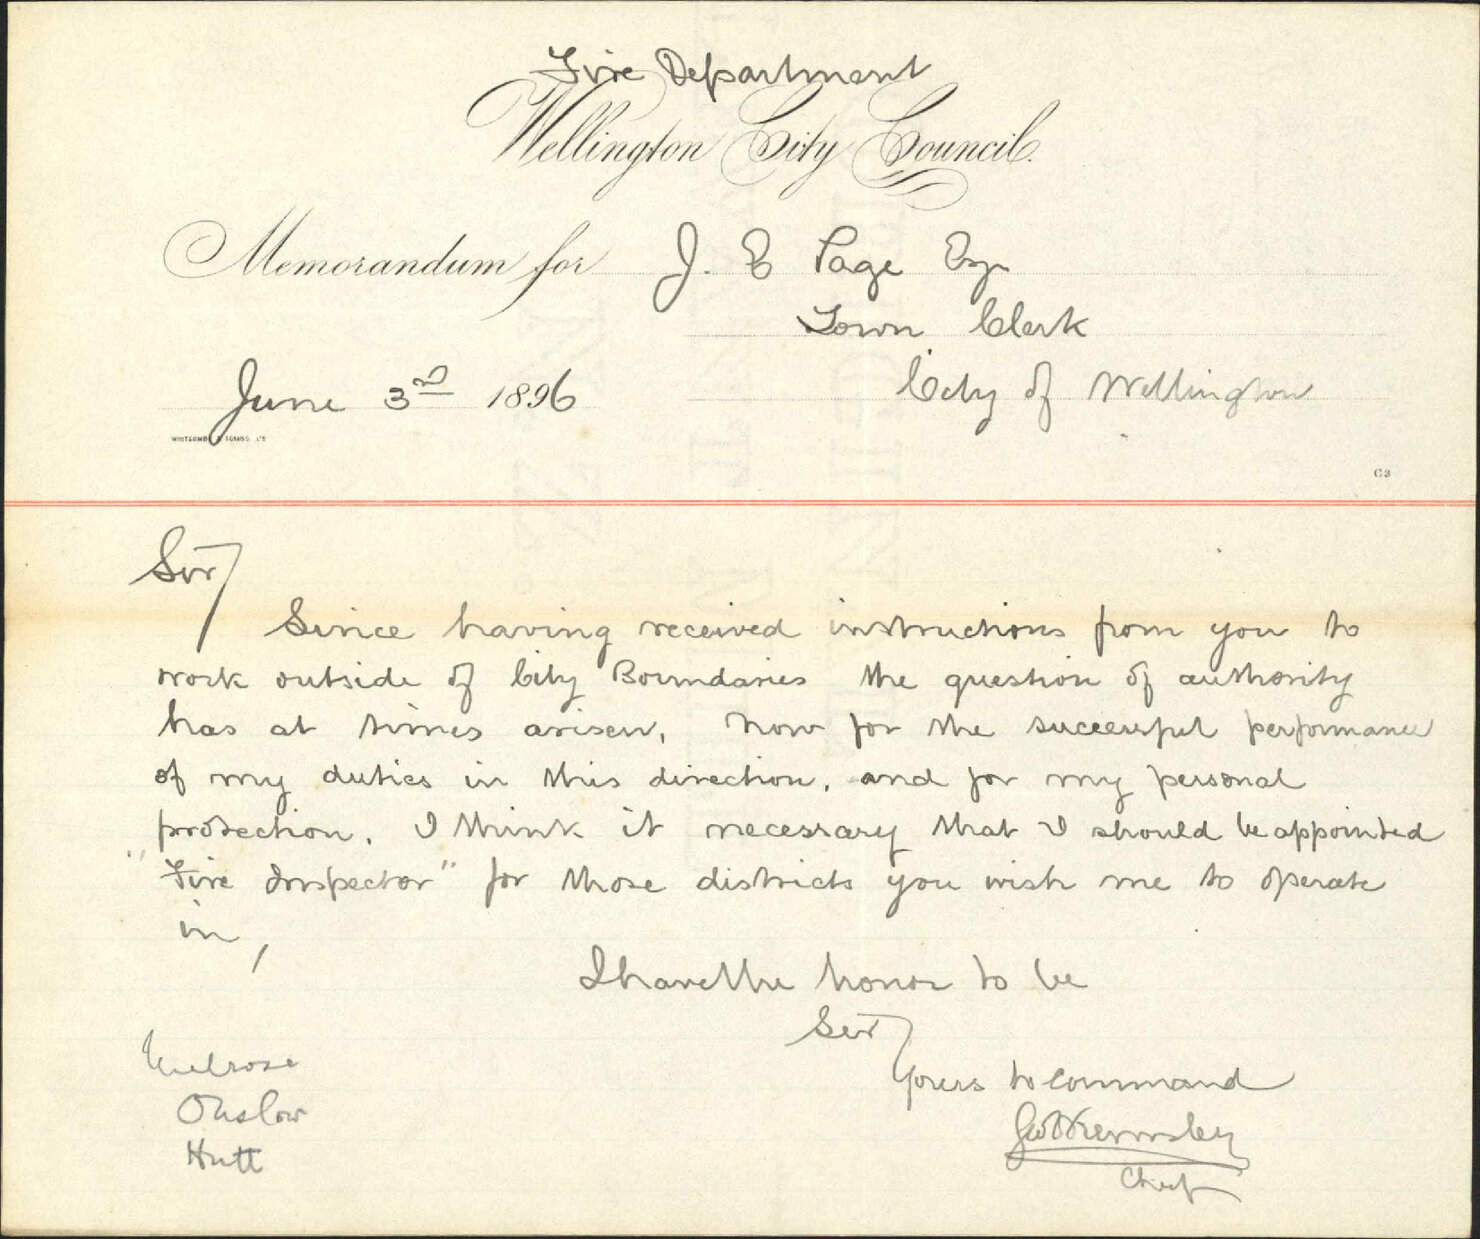 Fire Department
Wellington City Council.
Memorandum for J. E Page Esqr
Town Clerk
June 3rd 1896 City of Wellington
WHITCOMBE & TOMBS LD
C3
Sir
Since having received instructions from you to
work outside of City Boundaries the question of authority
has at times arisen, Now for the successful performance
of my duties in this direction, and for my personal
protection, I think it necessary that I should be appointed
"Fire Inspector" for those districts you wish me to operate
in,
I have the honor to be
Sir
Yours to Command
Kermsley
Chief
Melrose
Onslow
Hutt